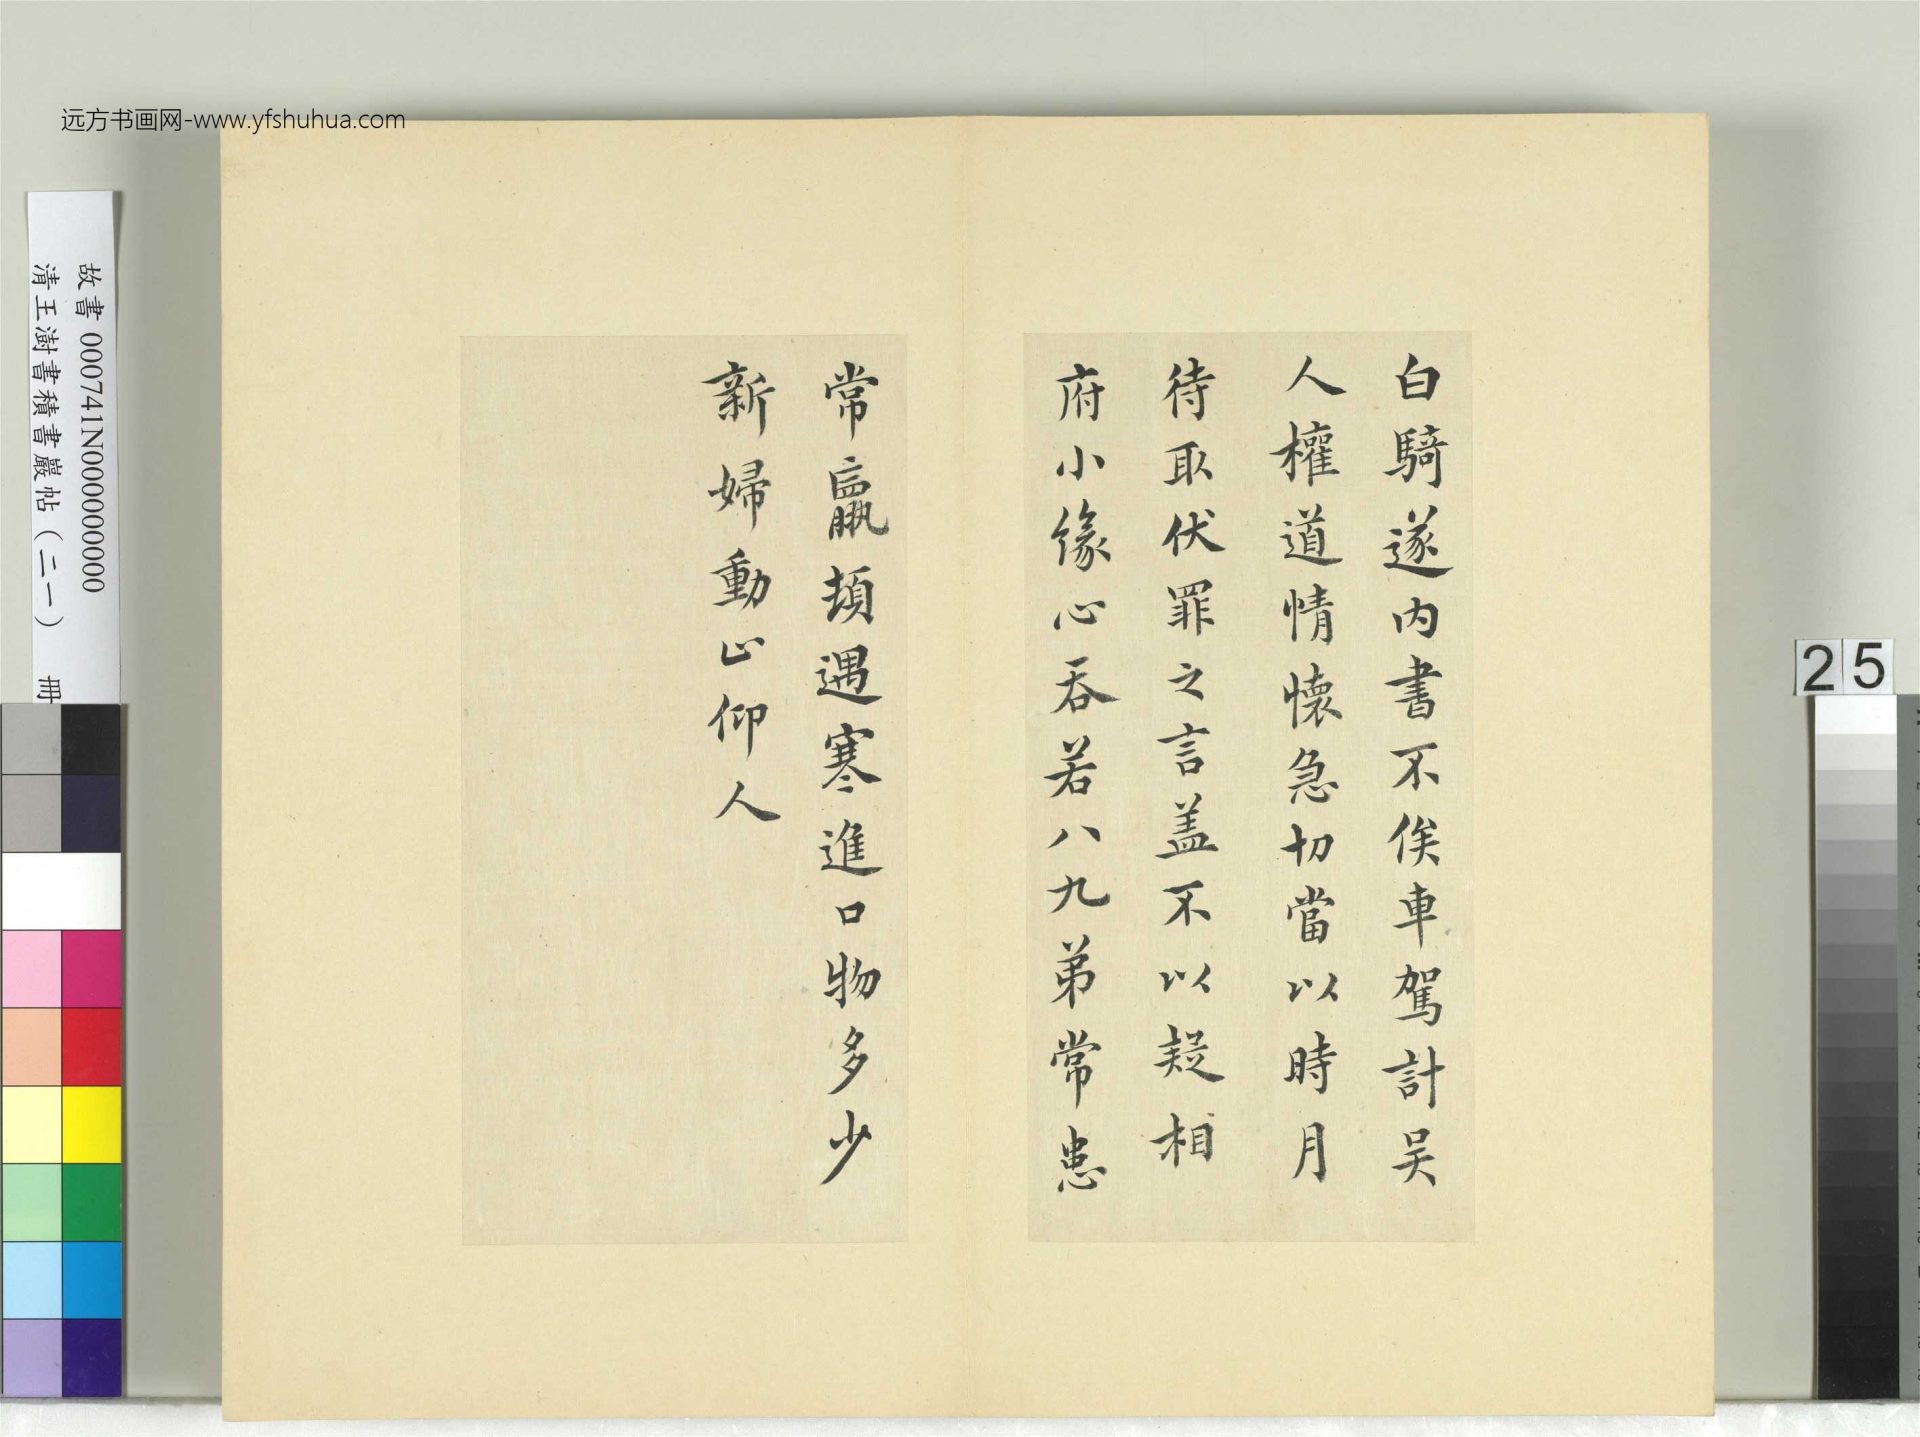 远方书画网-www.yfshuhua.com
故書 000741N000000000
清王澍書積書巖帖（二一） 冊
25
白騎遂內書不俟車駕計吴
人權道情懷急切當以時月
待取伏罪之言盖不以疑相
府小缘心吞若八九弟常患
常羸頓遇寒進口物多少
新婦動止仰人